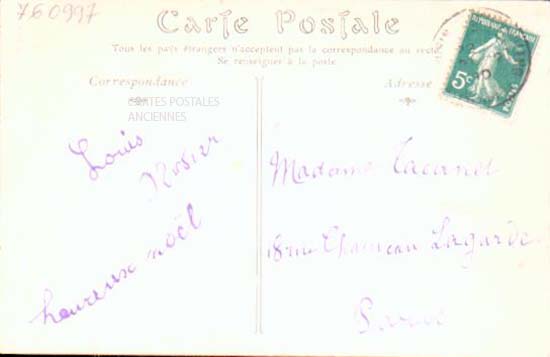 760997
Carte Postale
Tous les pays étrangers n'acceptent pas la correspondance au recto
Se renseigner à la poste
Correspondance
Adresse
REPUBLIQUE FRANCAISE
5c
POSTES
CARTES POSTALES
ANCIENNES
Louis
Rosier
heureux noël
Madame
18 rue Chauveau Lagarde
Paris